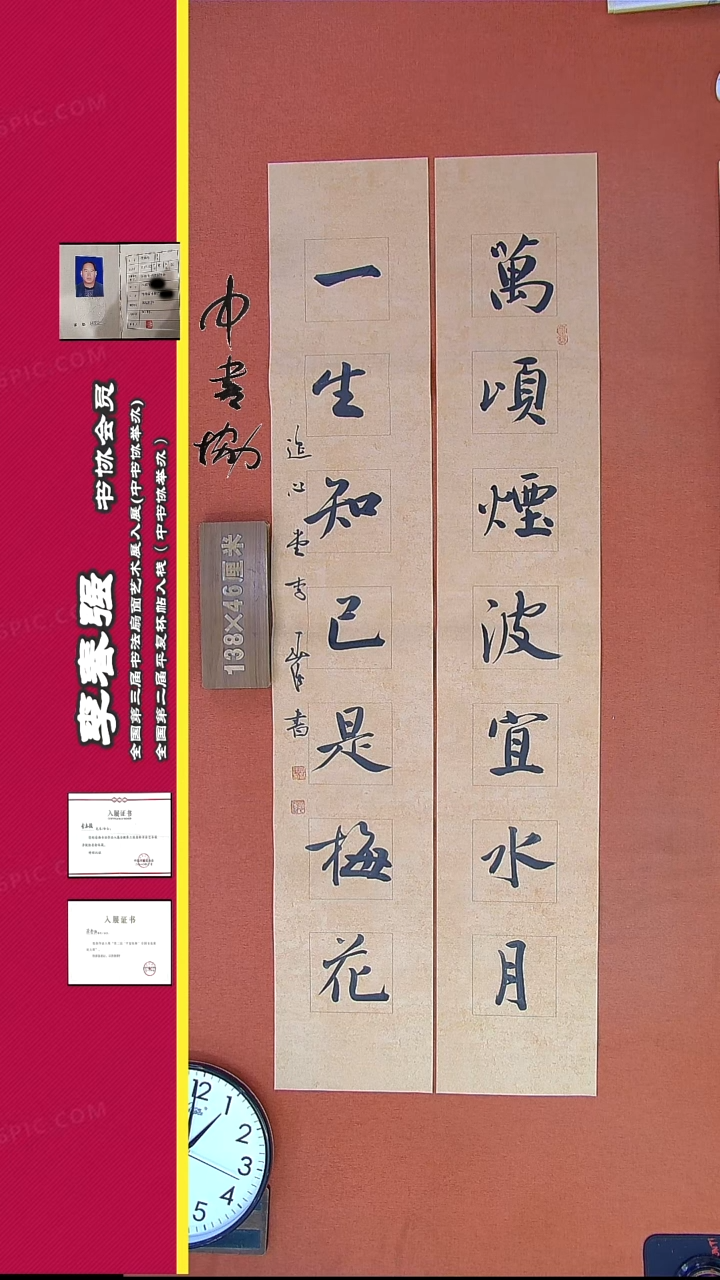 萬頃煙波宜水月
一生知己是梅花
追心堂李
書
中书协
138×46厘米
李春强 书协会员
全国第三届书法扇面艺术展入展(中书协举办)
全国第二届平复杯帖入展(中书协举办)
入展证书
入展证书
12
1
2
3
4
5